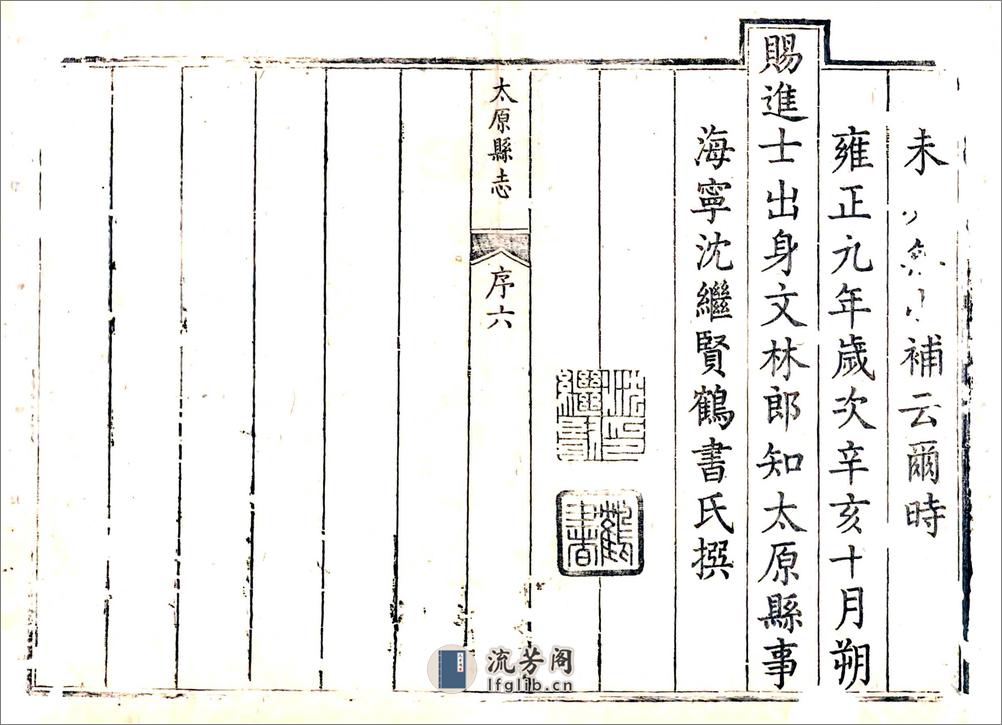 未補云爾時
雍正元年歲次辛亥十月朔
賜進士出身文林郎知太原縣事
海寧沈繼賢鶴書氏撰
沈印繼賢
鶴書
太原縣志
序六
流芳阁
lfglib.cn